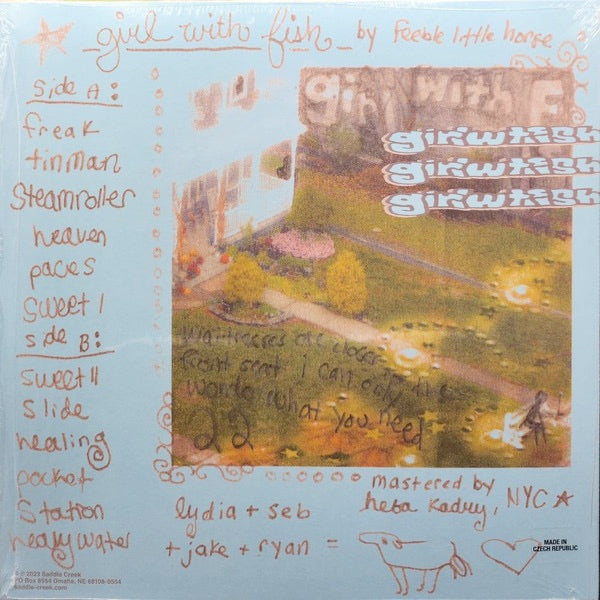 girl with fish by feeble little horse
Side A:
freak
tinman
Steamroller
heaven
paces
Sweet I
side B:
sweet II
Slide
healing
pocket
Station
heavy water
girl with F
girlwfish
girlwfish
girlwfish
waitresses are closer to the
front seat i can only
wonder what you need
22
mastered by
heba Kadry, NYC
lydia + seb
+ jake + ryan =
MADE IN
CZECH REPUBLIC
Saddle Creek
PO Box 8554 Omaha, NE 68108-0554
saddle-creek.com